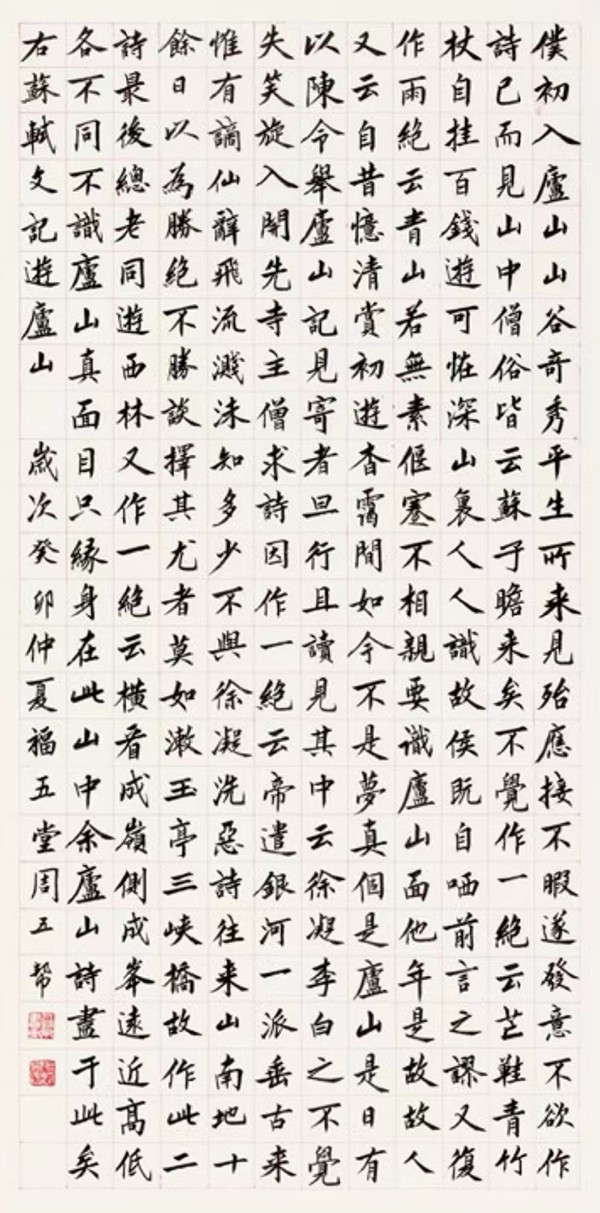 僕初入廬山山谷奇秀平生所来見殆應接不暇遂發意不欲作
詩已而見山中僧俗皆云蘇子瞻来矣不覺作一絕云芒鞋青竹
杖自挂百錢遊可恠深山裏人人識故侯既自哂前言之謬又復
作雨絕云青山若無素偃蹇不相親要識廬山面他年是故故人
又云自昔憶清賞初遊杳靄間如今不是夢真個是廬山是日有
以陳令舉廬山記見寄者旦行且讀見其中云徐凝李白之不覺
失笑旋入開先寺主僧求詩因作一絕云帝遣銀河一派垂古来
惟有謫仙辭飛流濺沫知多少不與徐凝洗惡詩往来山南地十
餘日以為勝絕不勝談擇其尤者莫如漱玉亭三峽橋故作此二
詩最後總老同遊西林又作一絕云橫看成嶺側成峯遠近高低
各不同不識廬山真面目只緣身在此山中余廬山詩盡于此矣
右蘇軾文記遊廬山 歲次癸卯仲夏福五堂周五幫